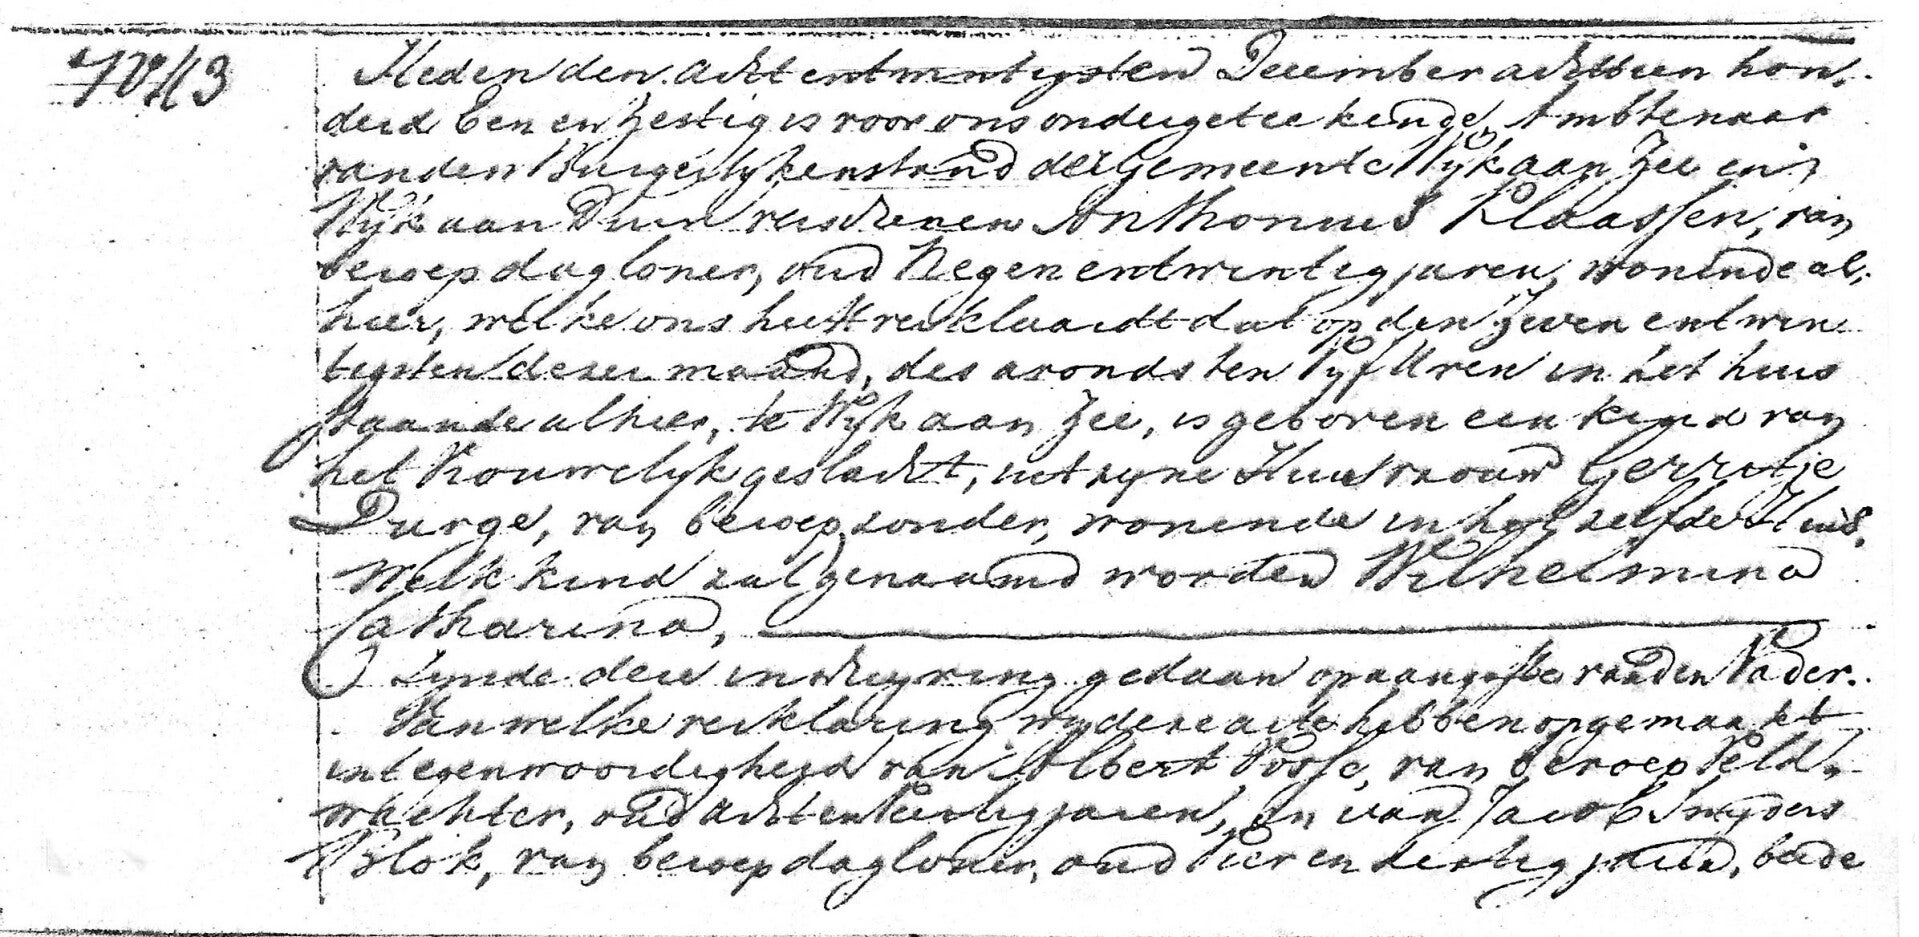 No 43
Heden den achtentwintigsten December achttien hon,
derd Een en Zestig is voor ons ondergeteekende, Ambtenaar
van den Burgerlyken stand der Gemeente Wyk aan Zee en
Wyk aan Duin verschenen Anthonius Klaassen, van
beroep dagloner, oud Negenentwintig jaren, wonende al,
hier, welke ons heeft verklaardt dat op den Zeven entwin
tigsten dezer maand, des avonds ten Vyf Uren in het huis
staande alhier, te Wyk aan Zee, is geboren een kind van
het Vrouwelyk geslacht, uit zyne Huisvrouw Gerritje
Durge, van beroep zonder, wonende in het zelfde Huis,
Welk kind zal genaamd worden Wilhelmina
Catharina,
Zynde deze inschryving gedaan op aangifte van den Vader.
Van welke verklaring wy deze acte hebben opgemaakt
in tegenwoordigheid van Albert Vosse, van beroep Veld,
wachter, oud acht en jaren, En van Jacob Snyders
Blok, van beroep dagloner, oud Vier en dertig jaren, beide